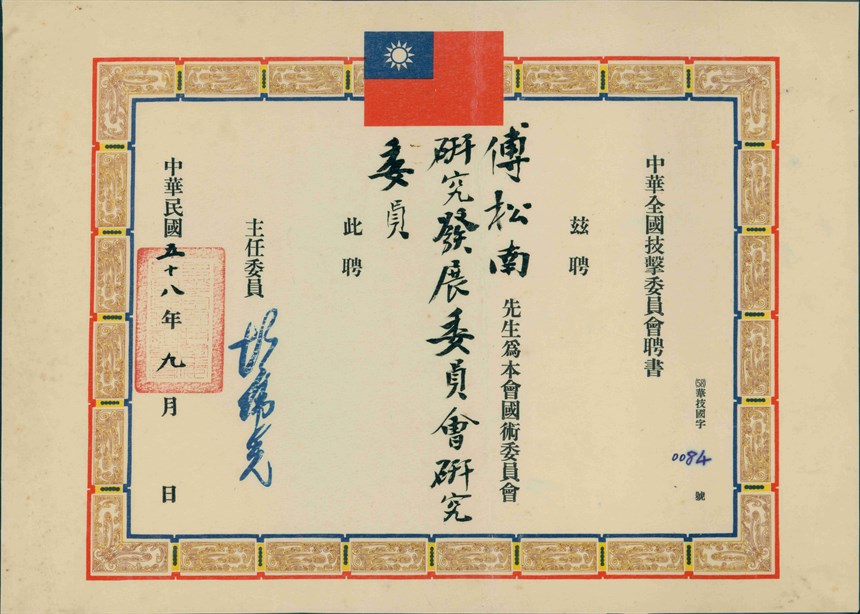 中華全國技擊委員會聘書
(58)華技國字 0084 號
茲聘
傅松南先生為本會國術委員會
研究發展委員會研究
委員
此聘
主任委員
中華民國五十八年九月 日